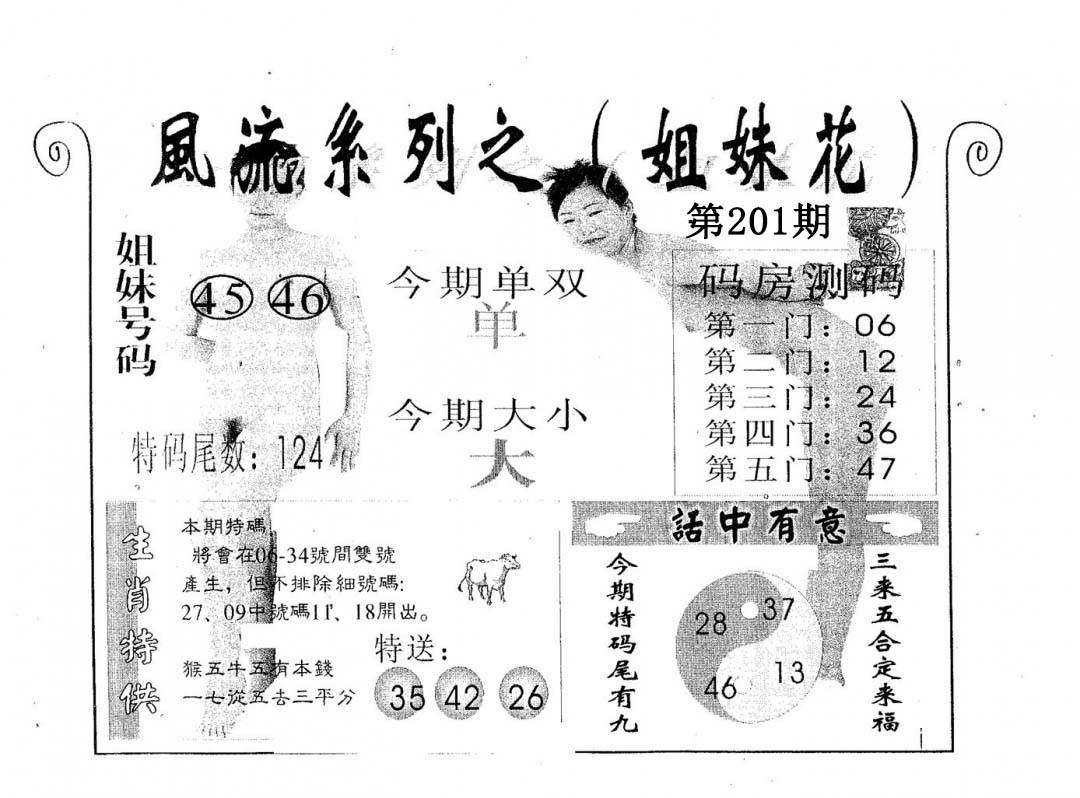 風流系列之（姐妹花）
第201期
姐妹号码
45 46
今期单双
单
今期大小
大
特码尾数：124
码房测码
第一门：06
第二门：12
第三门：24
第四门：36
第五门：47
生肖特供
本期特碼
將會在06-34號間雙號
產生，但不排除細號碼:
27、09中號碼11、18開出。
猴五牛五有本錢
一七從五去三平分
特送：
35 42 26
話中有意
今期特码尾有九
28 37
46 13
三来五合定来福